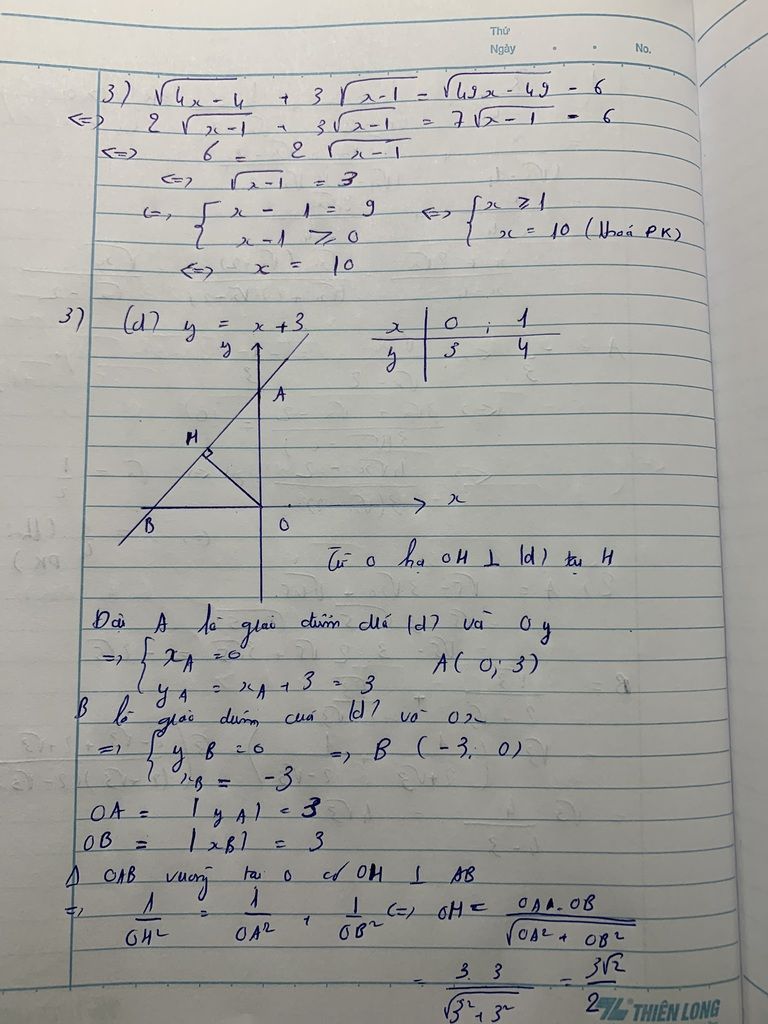 Thứ
Ngày . . No.
3) √(4x-4) + 3 √(x-1) = √(49x-49) - 6
<=> 2 √(x-1) + 3√(x-1) = 7√(x-1) - 6
<=> 6 = 2 √(x-1)
<=> √(x-1) = 3
<=> { x - 1 = 9 <=> { x ≥ 1
x-1 ≥ 0 x = 10 (thoả ĐK)
<=> x = 10
3) (d) y = x + 3 x | 0 ; 1
y y | 3 4
A
H
x
B O
Từ O hạ OH ⊥ (d) tại H
A là giao điểm của (d) và Oy
=> { xA = 0 A( 0; 3)
yA = xA + 3 = 3
B là giao điểm của (d) và Ox
=> { yB = 0 => B (-3; 0)
xB = -3
OA = |yA| = 3
OB = |xB| = 3
Δ OAB vuông tại O có OH ⊥ AB
=> 1/OH² = 1/OA² + 1/OB² <=> OH = OA.OB/√(OA² + OB²)
= 3.3/√(3² + 3²) = 3√2/2
THIÊN LONG